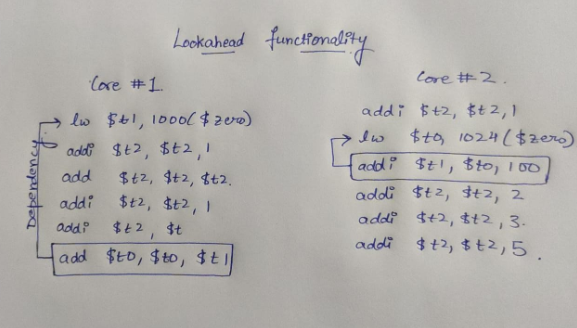 Lookahead functionality
Core #1.
lw $t1, 1000($zero)
addi $t2, $t2, 1
add $t2, $t2, $t2.
addi $t2, $t2, 1
addi $t2, $t
add $t0, $t0, $t1
Dependency
Core #2.
addi $t2, $t2, 1
lw $t0, 1024($zero)
addi $t1, $t0, 100
addi $t2, $t2, 2
addi $t2, $t2, 3.
addi $t2, $t2, 5.